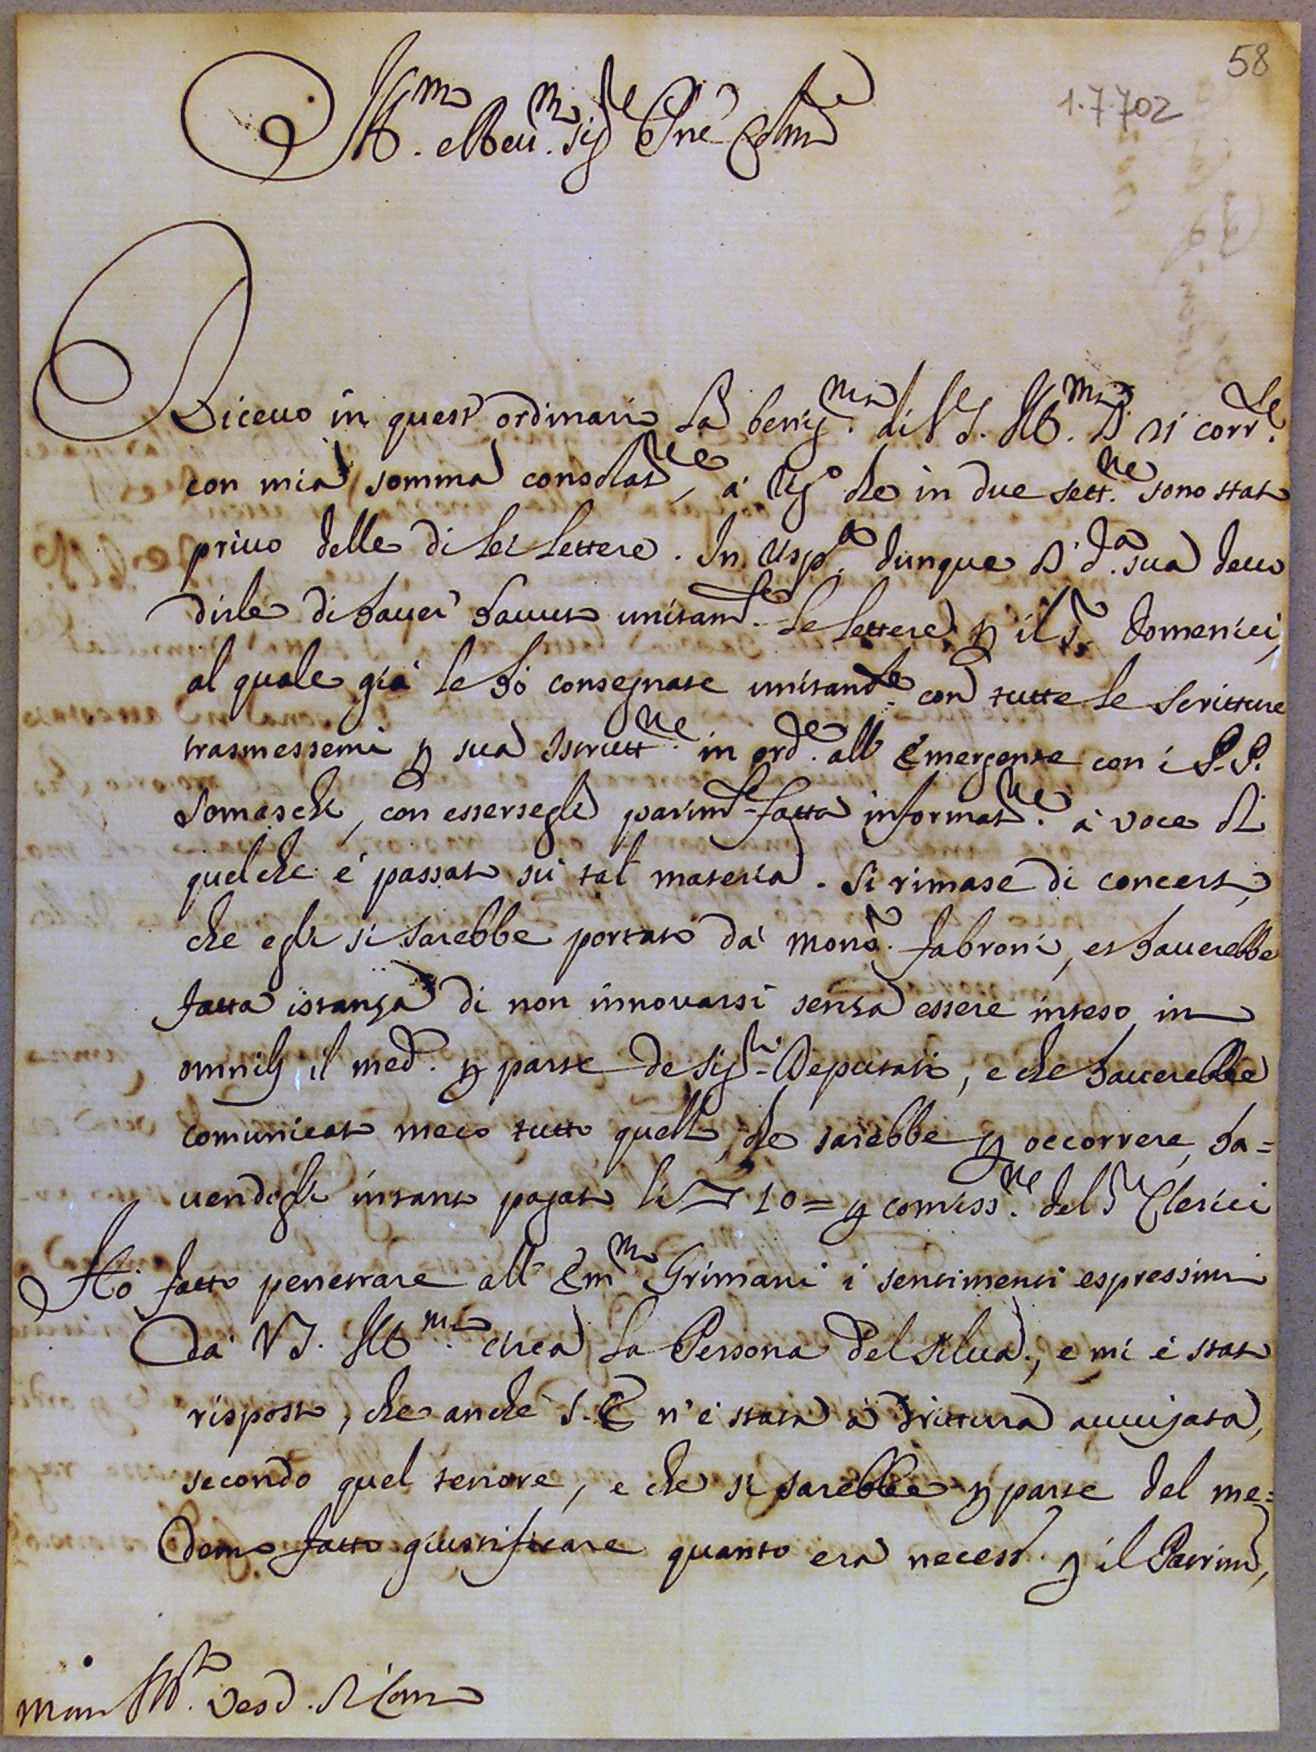 58
1.7.702
Ill.mo e Reu.mo Sig.re P.rne Col.mo
Riceuo in quest'ordinario la benig.ma di V.S. Ill.ma d. 21 corr.te
con mia somma consolat.ne, à che in due sett.ne sono stato
priuo delle di lei lettere. In risp.a dunque à d.a sua deuo
dirle di hauer hauuto unitam.te le lettere p il S.r Domenici,
al quale già le hò consegnate unitam.te con tutte le scritture
trasmessemi p sua istrutt.ne in ord.e all'emergente con i P.P.
Somaschi, con essersegli parim.te fatta informat.ne à voce di
quel che è passato sù tal materia. Si rimase di concerto,
che egli si sarebbe portato dà Mons.r Fabroni, et hauerebbe
fatta istanza di non innouarsi senza essere inteso in
omnib il med.o p parte de Sig.ri Deputati, e che hauerebbe
comunicato meco tutto quello, che sarebbe p occorrere, ha=
uendogli intanto pagato li 10= p comiss.ne del S.r Clerici
Hò fatto penetrare all'Em.mo Grimani i sentimenti espressimi
Dà V.S. Ill.ma circa la Persona del Silua, e mi è stato
risposto, che anche S.E. n'è stata à drittura auuisata,
secondo quel tenore, e che si sarebbe p parte del me=
demo fatto giustificare quanto era necess.o p il Patrim.o,
Mons. Ill.mo Vesc. di Como